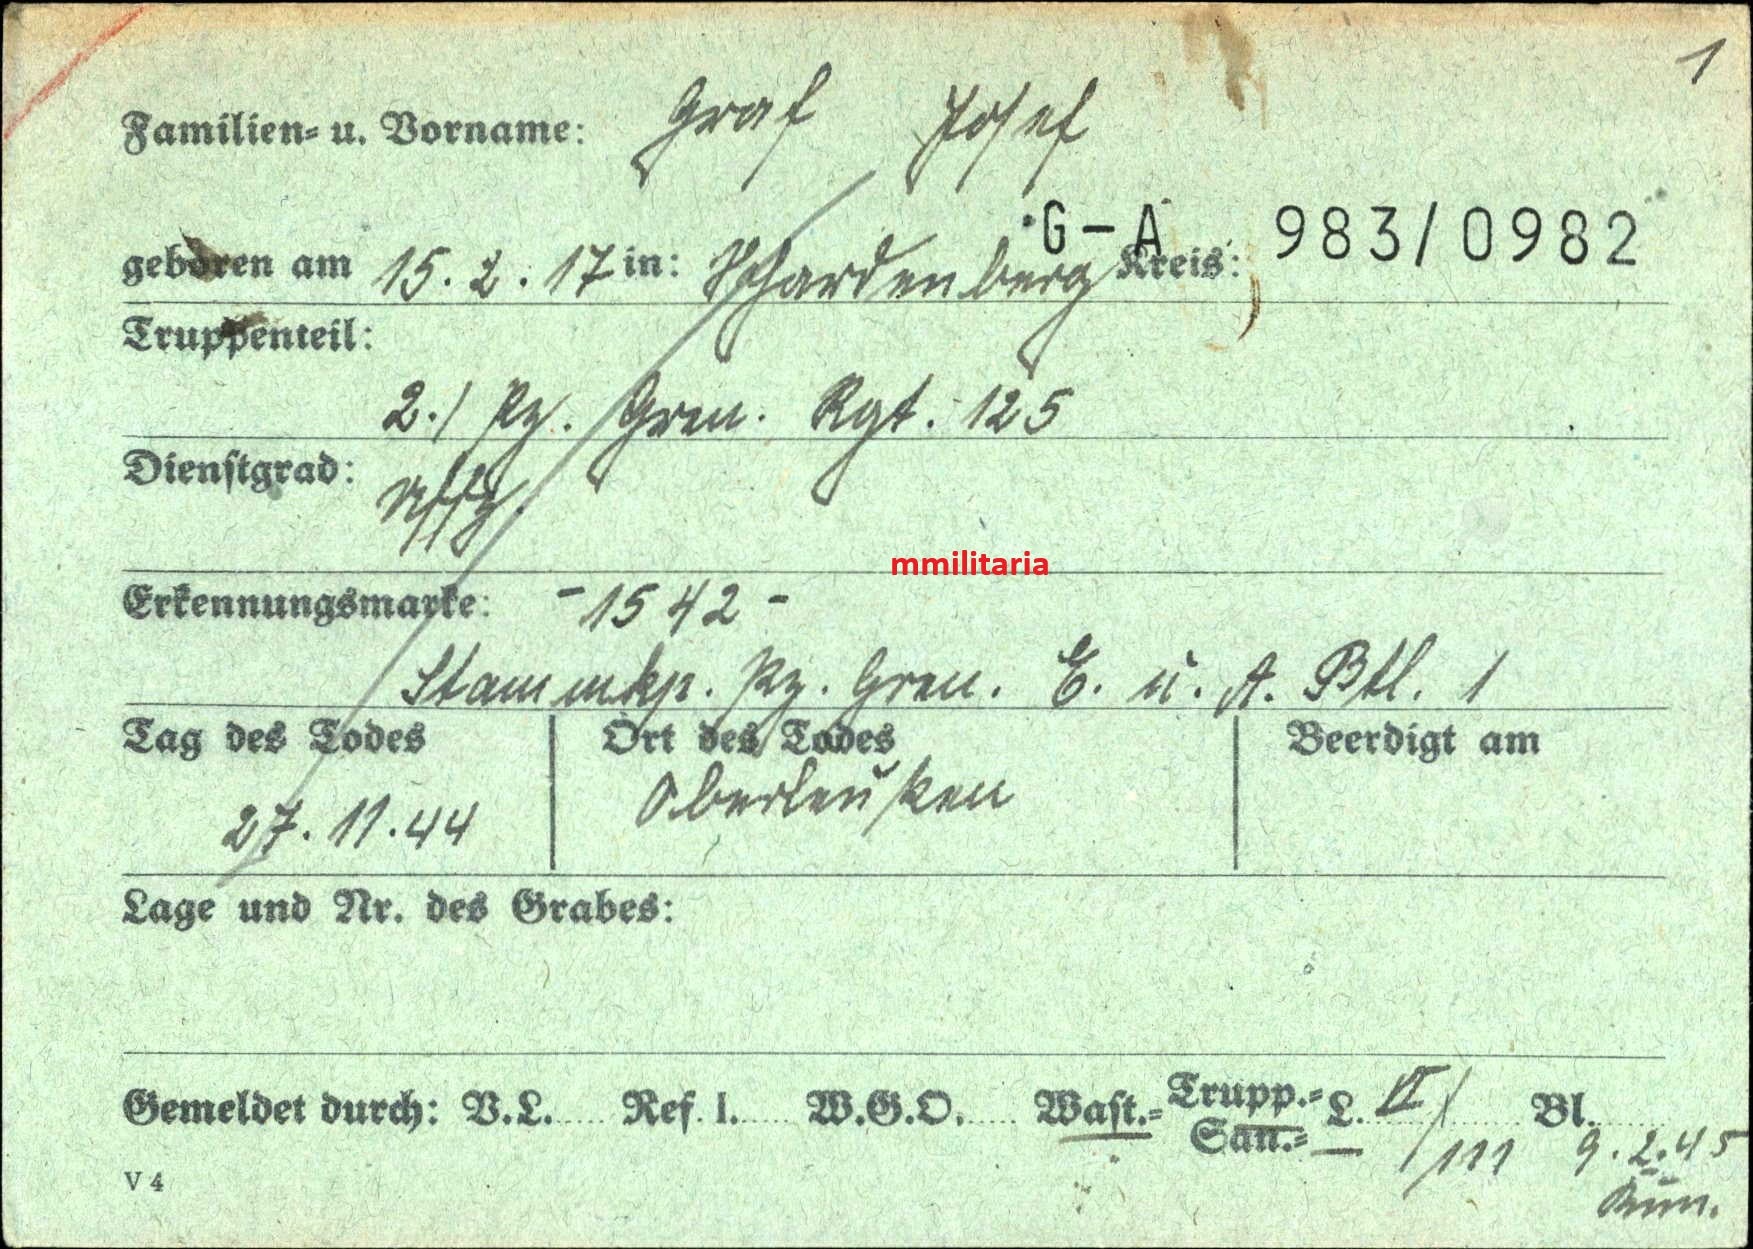 1
Familien- u. Vorname: Graf Josef
G-A 983/0982
geboren am 15.2.17 in: Schardenberg Kreis:
Truppenteil:
2./ Pz. Gren. Rgt. 125
Dienstgrad: Uffz.
mmilitaria
Erkennungsmarke: -1542-
Stammkp. Pz. Gren. E. u. A. Btl. 1
Tag des Todes Ort des Todes Beerdigt am
27.11.44 Oberleuken
Lage und Nr. des Grabes:
Gemeldet durch: V.L. Ref. I. W.G.O. Wast.- Trupp.- San.- L. VI/111 Bl.
9.2.45
V 4